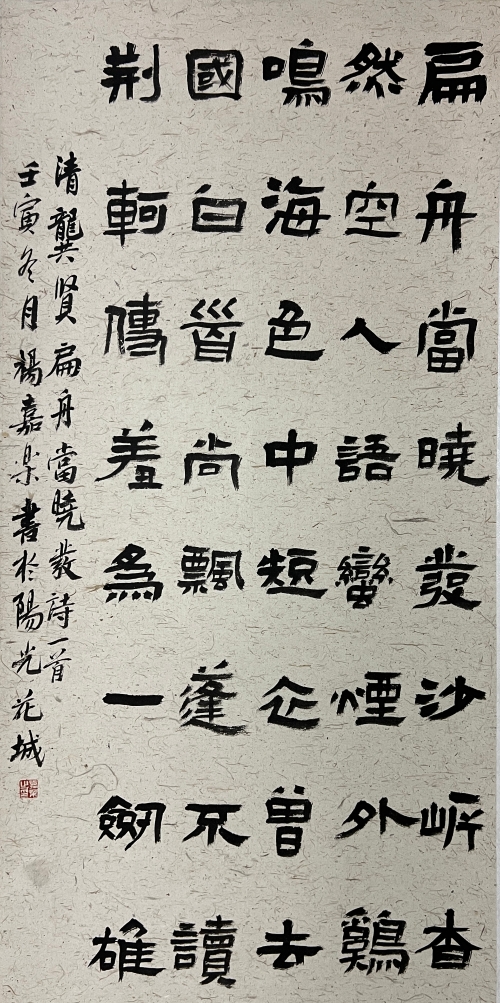 扁舟當曉發沙岸杳
然空人語蠻煙外鷄
鳴海色中短衣曾去
國白首尚飄蓬不讀
荆軻傳羞為一劒雄
清龔賢扁舟當曉發詩一首
壬寅冬月楊嘉楽書於陽光花城